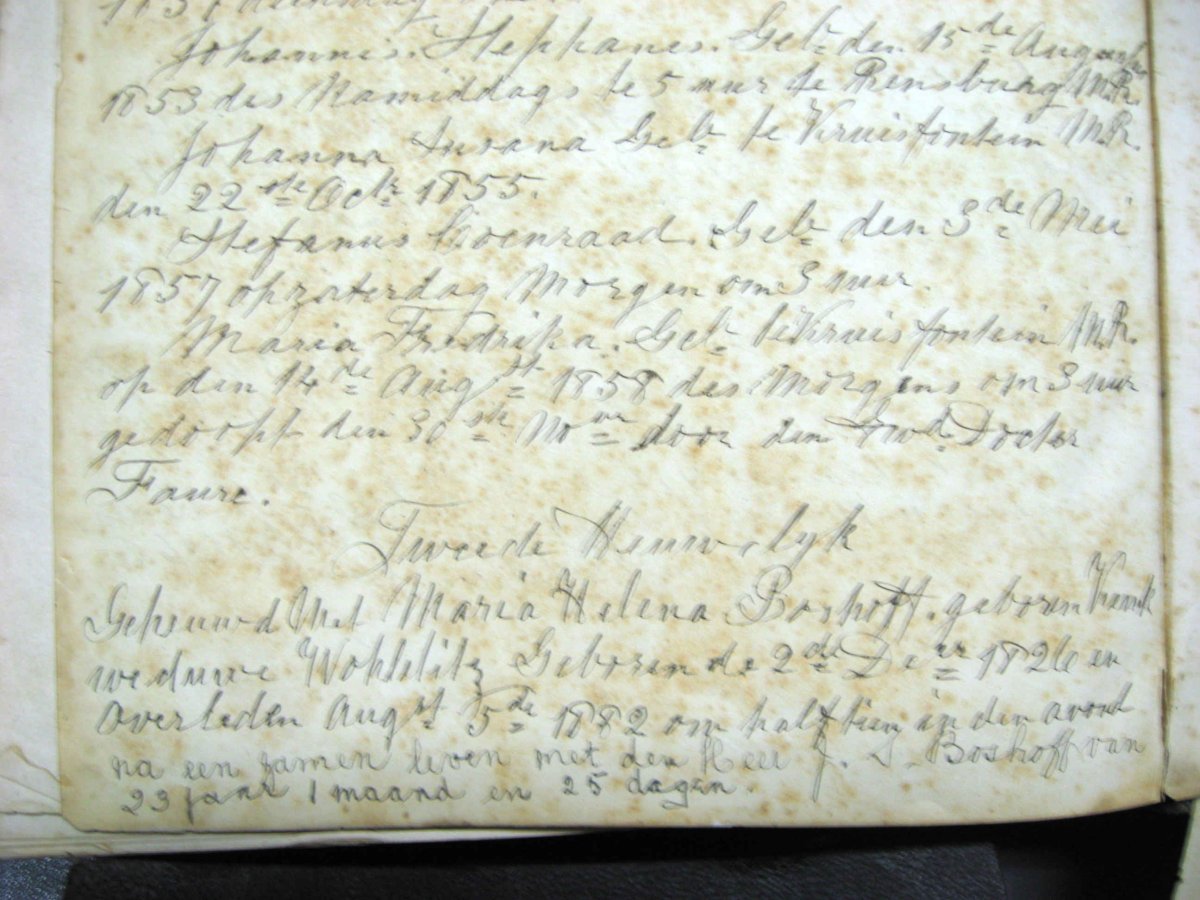 Johannis. Stephanes. Geb.r den 15de August
1853 des Namiddags te 5 uur te Rensburg M.R.
Johanna Susana Geb.r te Kruisfontein M.R.
den 22ste Octr 1855.
Stefanus Coenraad. Geb.r den 3de Mei
1857 op zaterdag Morgen om 3 uur.
Maria Fredrika. Geb.r te Kruisfontein M.R.
op den 14de Augst 1858 des Morgens om 3 uur
gedoopt den 30ste Nover door den Ewd. Docter
Faure.
Tweede Heuwelyk
Geheuwd Met Maria Helena Boshoff. geboren
weduwe Wohlitz Geboren de 2de Deer 1826 en
overleden Augst 5de 1882 om half tien in den avont
na een zamen leven met den Heer J. S. Boshoff van
23 jaar 1 maand en 25 dagen.